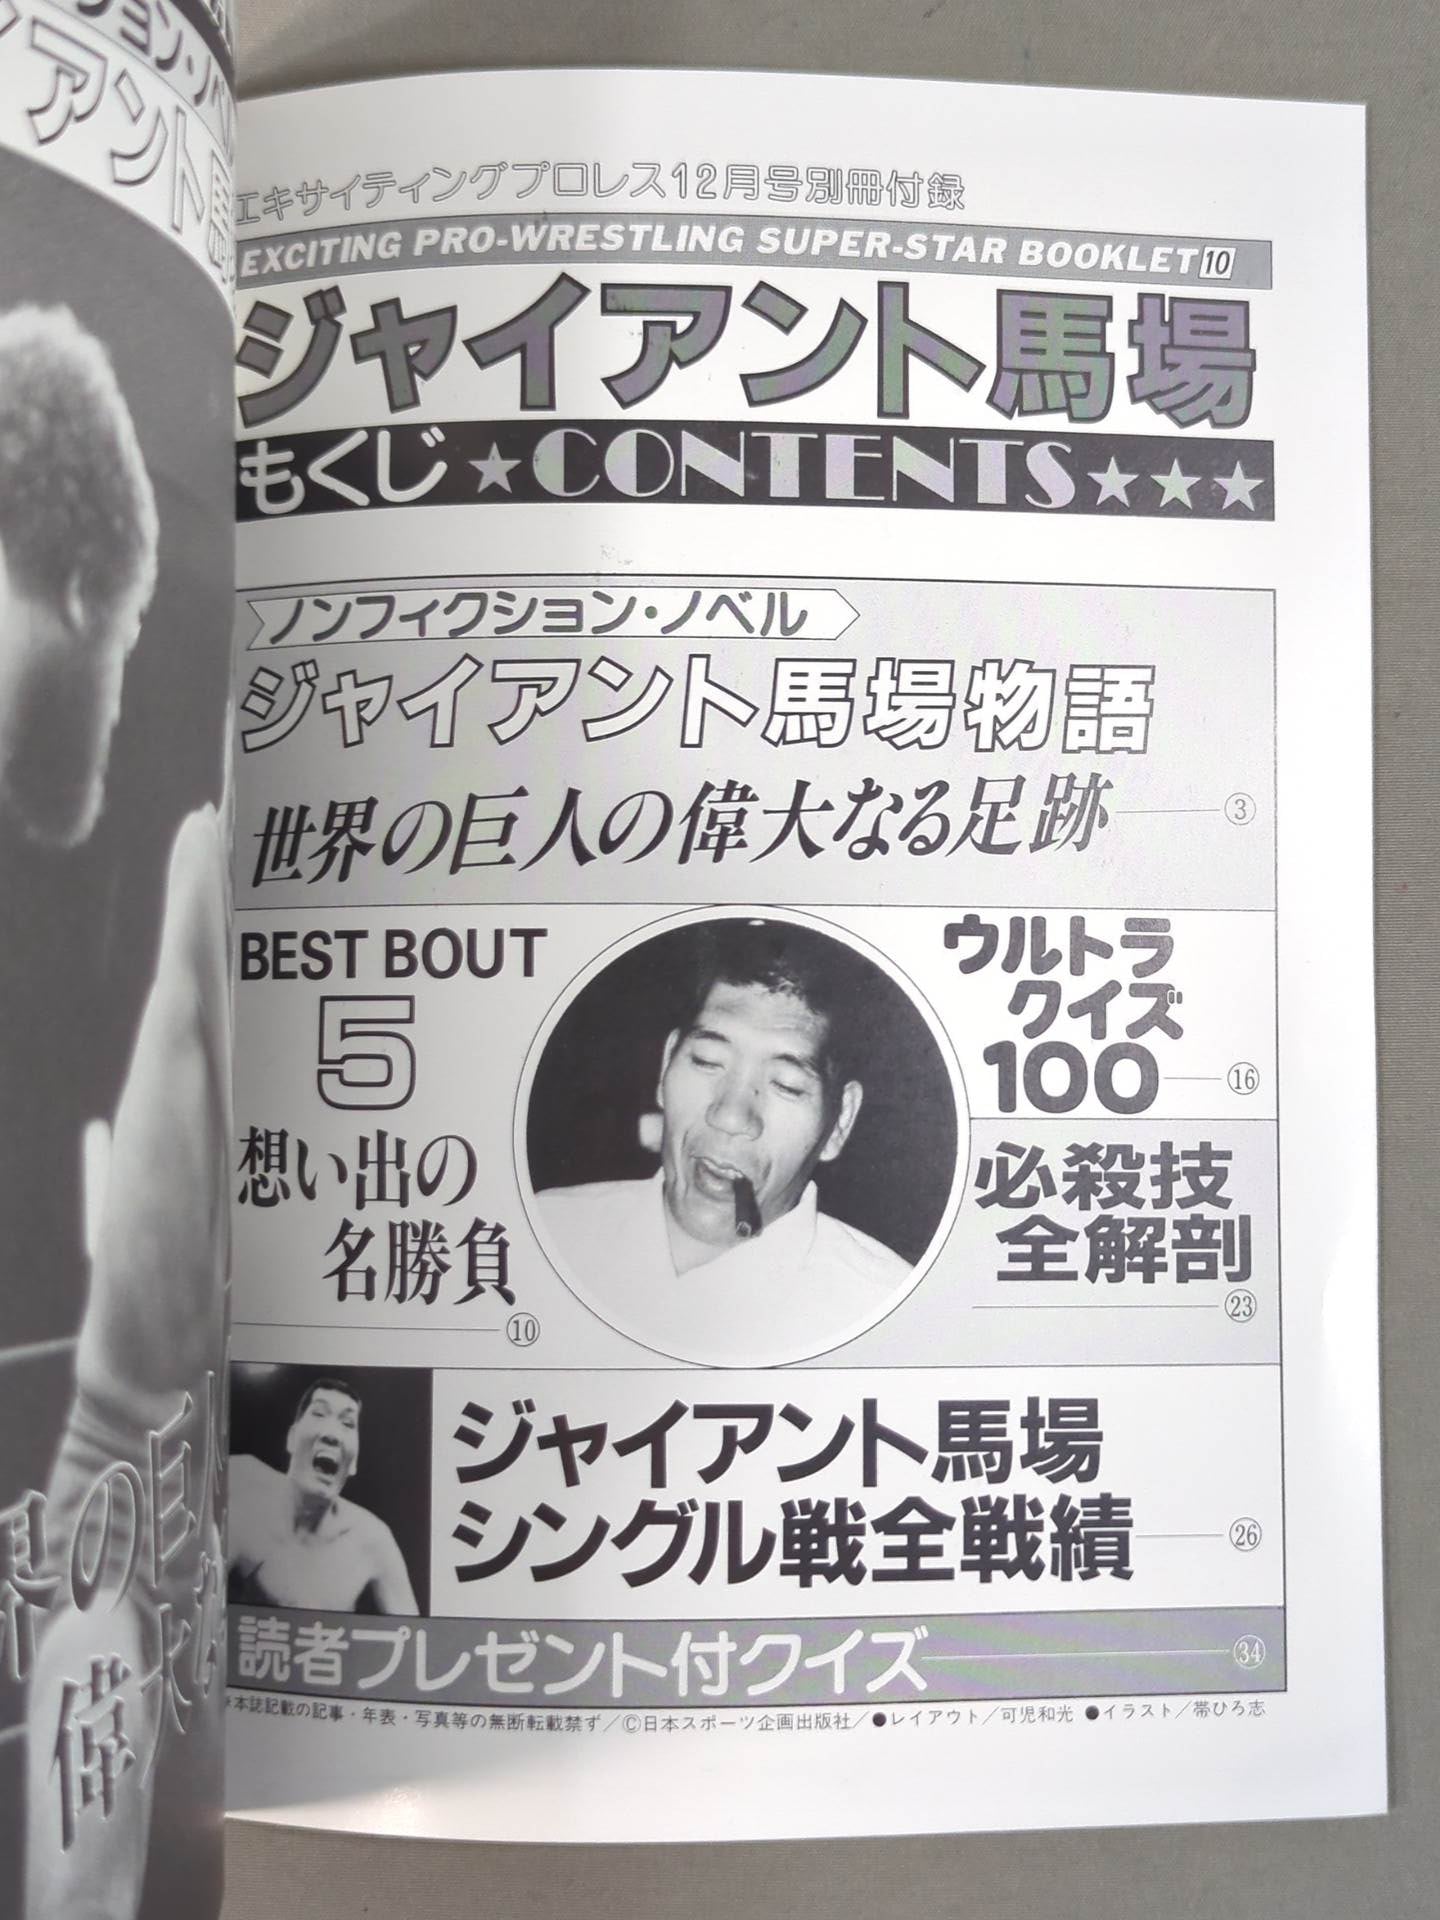 エキサイティングプロレス12月号別冊付録
EXCITING PRO-WRESTLING SUPER-STAR BOOKLET 10
ジャイアント馬場
もくじ ★CONTENTS★★★
ノンフィクション・ノベル
ジャイアント馬場物語
世界の巨人の偉大なる足跡 ③
BEST BOUT
5
想い出の
名勝負
⑩
ウルトラ
クイズ
100 ⑯
必殺技
全解剖
㉓
ジャイアント馬場
シングル戦全戦績 ㉖
読者プレゼント付クイズ ㉞
*本誌記載の記事・年表・写真等の無断転載禁ず/Ⓒ日本スポーツ企画出版社/●レイアウト/可児和光 ●イラスト/帯ひろ志
ション・ノベ
アント馬
界の巨人
偉大な